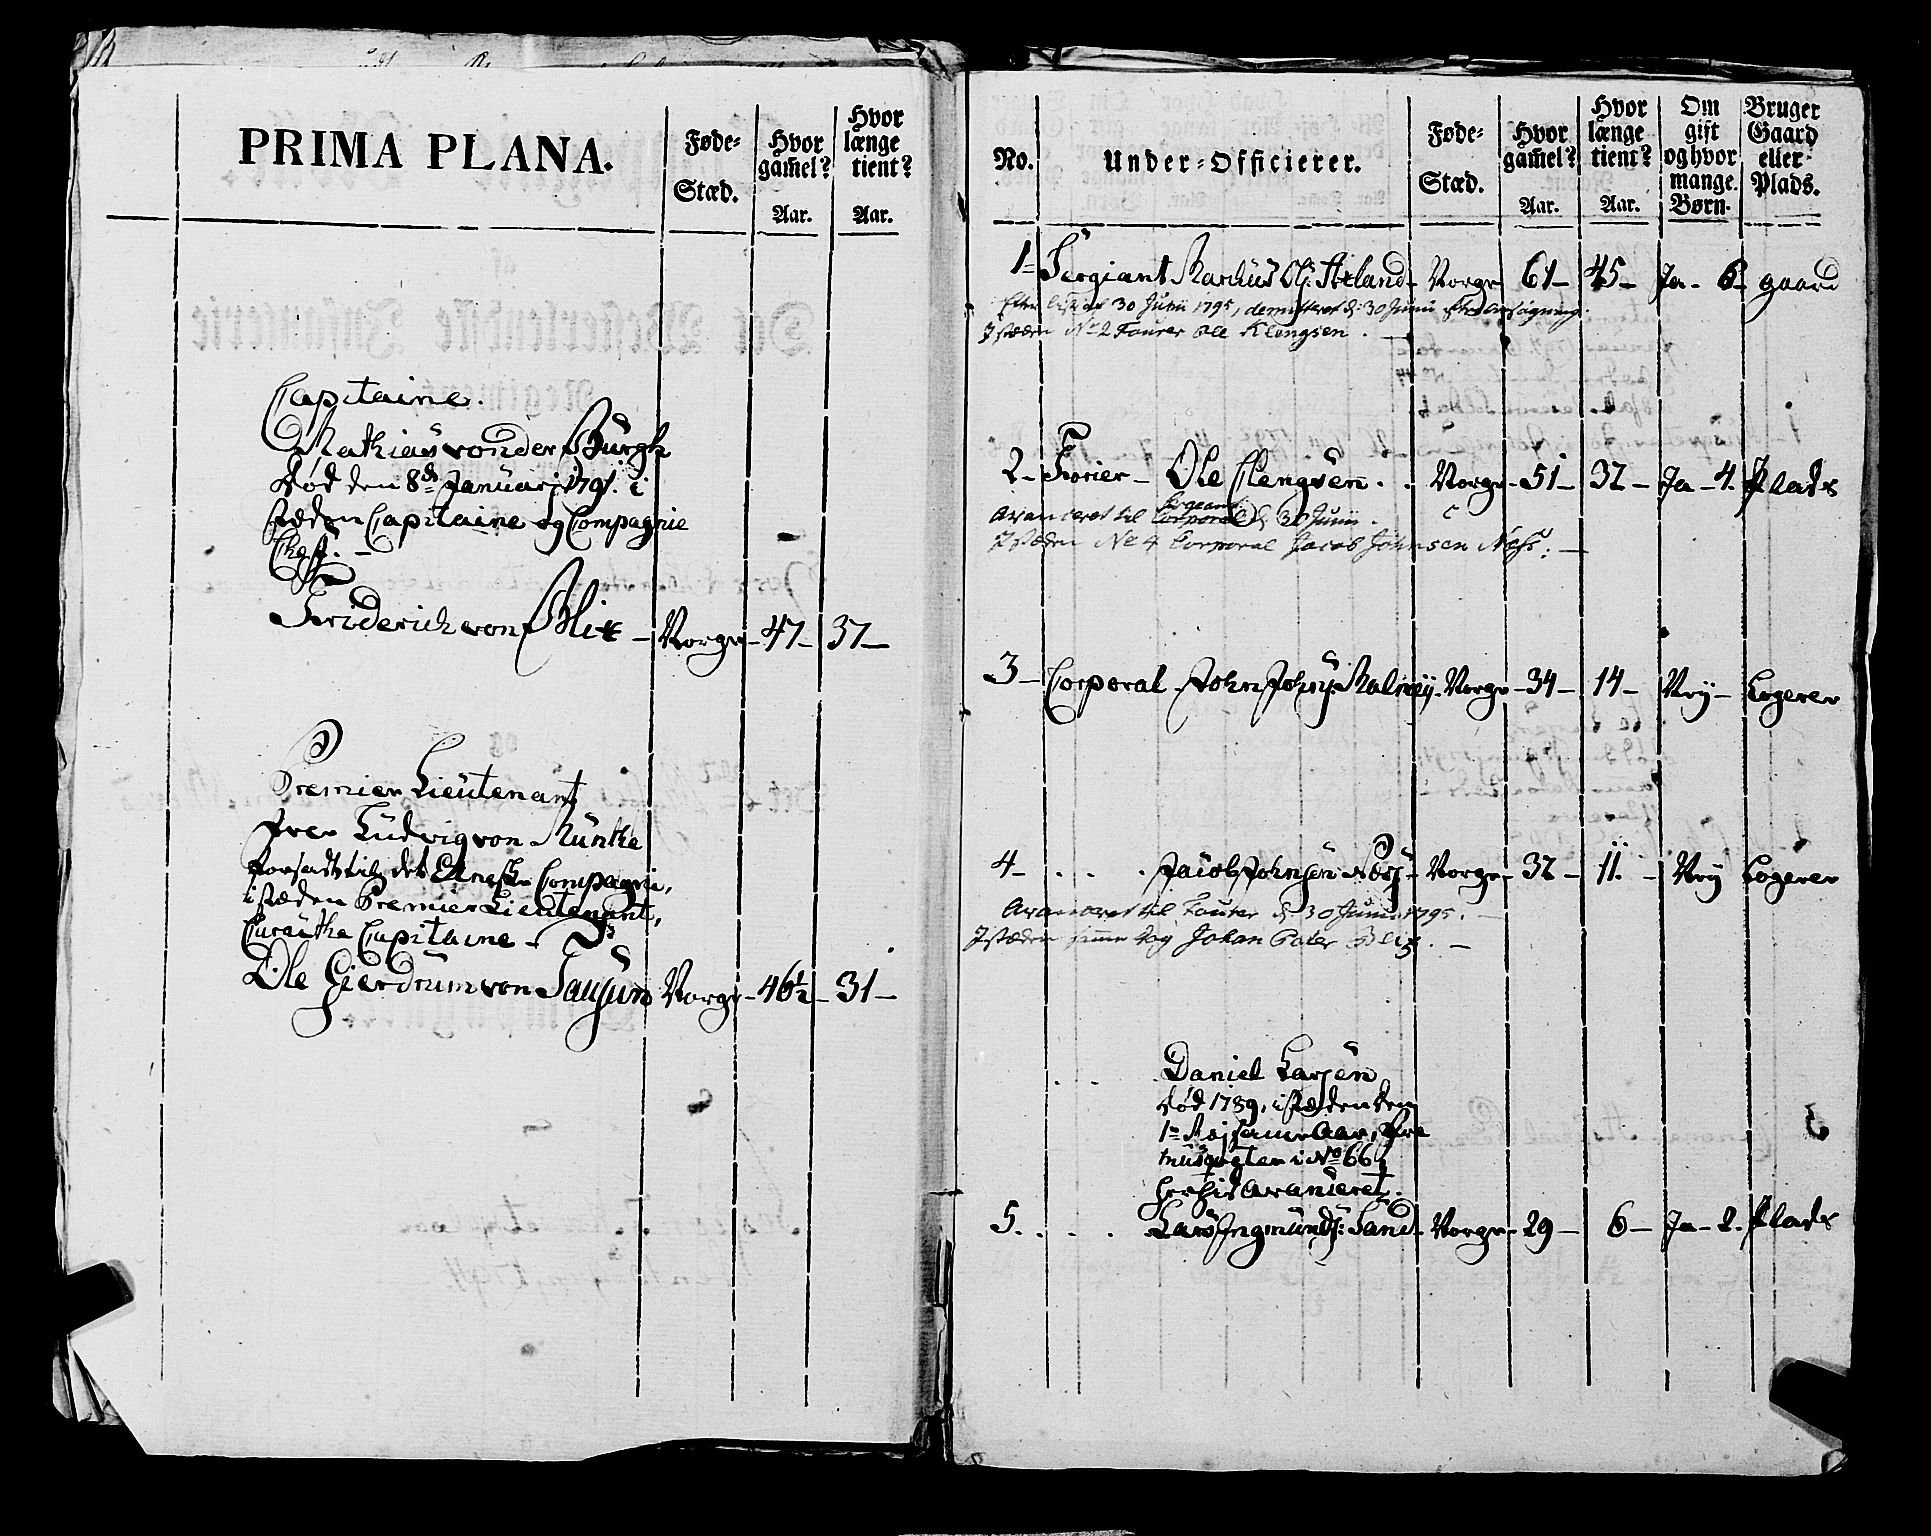 PRIMA PLANA.
Føde-
Stæd.
Hvor
gam̄el?
Aar.
Hvor
længe
tient?
Aar.
Capitaine.
Mathias von der Burgh
død den 8de Januarj 1791. i
stæden Capitaine og Compagnie
Cheff. —
Friderich von Blix — Norge — 47 — 37 —
Premier Lieutenant
Ludvig von Munthe
forsadt til det Compagnie,
i stæden Premier Lieutenant,
Capitaine —
Ole Gierdrum von Norge — 46½ — 31 —
No.
Under-Officierer.
Føde-
Stæd.
Hvor
gam̄el?
Aar.
Hvor
længe
tient?
Aar.
Om
gift
og hvor
mange
Børn.
Bruger
Gaard
eller
Plads.
1 Sergiant Marchus Ols. Norge 61 — 45 — Ja — 6 gaard
30 Junii 1795, demitteret d. 30 Junii efter Ansøgning.
Istæden No 2 Fourer Ole Klengsen. —
2 — Forier — Ole Clengsen . . Norge — 51 — 32 — Ja — 4. Plads
Sergeant
Avanceret til Corporal d. 30 Junii.
Istæden No 4 Corporal Jacob Johnsen Næss: —
3 — Corporal John Johns: Norge — 34 — 14 — Nej — Logerer
4 — . . . Jacob Johnsen Næss — Norge — 32 — 11. — Nej Logerer
Avanceret til Fourer d. 30 Junii 1795. —
Istæden samme dag Johan Peter Blix. —
. . . Daniel Larsen
død 1789, i stæden den
1te samme Aar, Fra
musqueter i No 66
herhid avanceret.
5. . . . Lars Ingmunds: Sand — Norge — 29 — 6 — Ja — 2. Plads